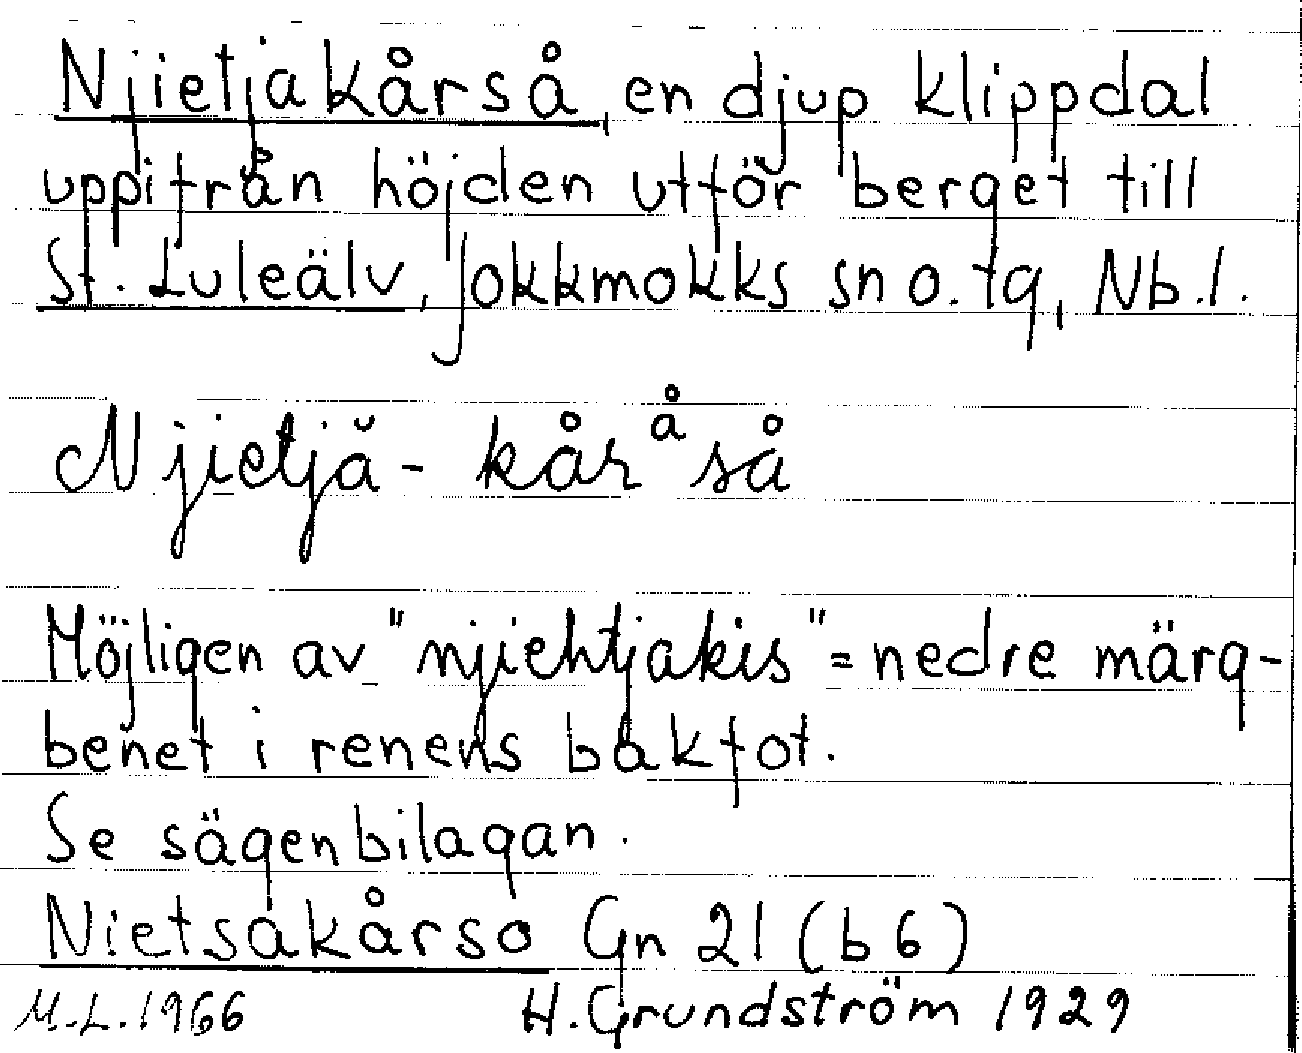 Njietjakårså, en djup klippdal
uppifrån höjden utför berget till
St. Luleälv, Jokkmokks sn o. tg, Nb.l.
Njietjă- kåråså
Möjligen av "njiehtjakis" = nedre märg-
benet i renens bakfot.
Se sägenbilagan.
Nietsakårso Gn 21 (b6)
M.L.1966 H.Grundström 1929